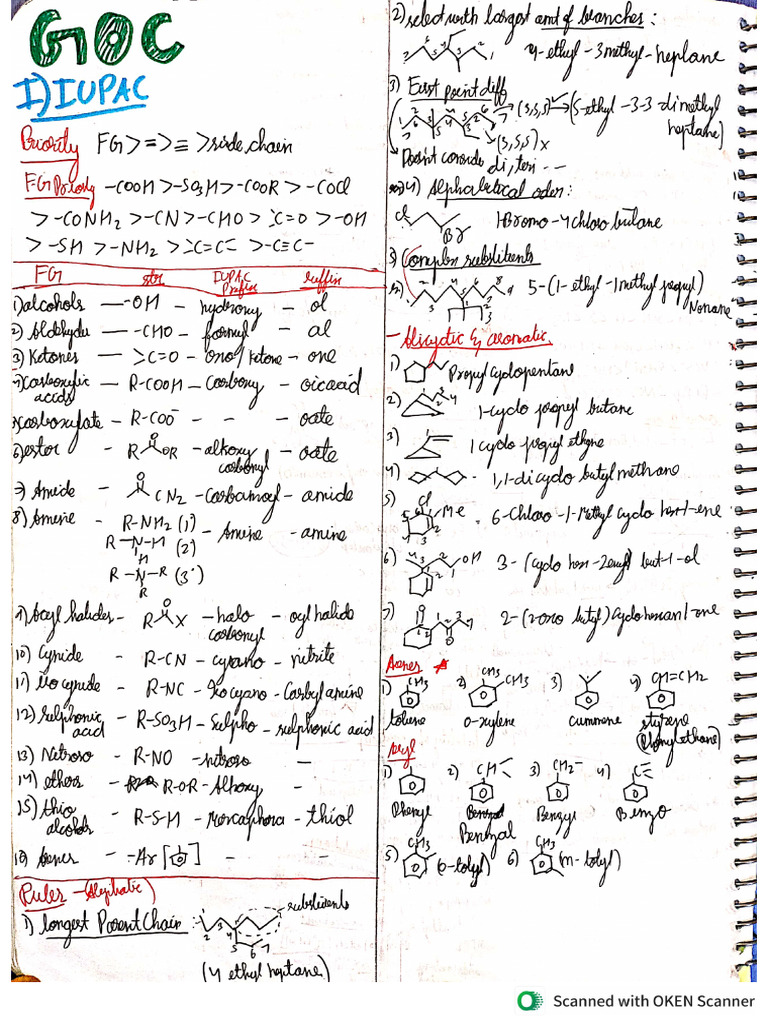 GOC
I) IUPAC
Priority FG > = > ≡ > side chain
FG Priority -COOH > -SO3H > -COOR > -COCl
> -CONH2 > -CN > -CHO > >C=O > -OH
> -SH > -NH2 > >C=C< > -C≡C-
FG str IUPAC Prefix suffix
1) alcohols — -OH — hydroxy - ol
2) Aldehyde — -CHO — formyl - al
3) Ketones — >C=O - oxo/Ketone - one
4) Carboxylic acids - R-COOH - Carboxy - oic acid
5) carboxylate - R-COO⁻ - - - oate
6) ester - R O OR - alkoxy carbonyl - oate
7) Amide - O CN2 - Carbamoyl - amide
8) Amine - R-NH2 (1°) - Amine - amine
R-N-H (2°)
H
R-N-R (3°)
R
9) Acyl halides - R O X - halo carbonyl - oyl halide
10) Cynide - R-CN - cyano - nitrite
11) Isocynide - R-NC - Isocyano - Carbylamine
12) sulphonic acid - R-SO3H - Sulpho - sulphonic acid
13) Nitroso - R-NO - nitroso -
14) ethers - R-OR - Alkoxy -
15) thio alcohols - R-S-H - Mercaptora - thiol
- -Ar [ ] - -
Rules - (Aliphatic)
1) longest Parent Chain
substituents
1 2 3 4 5 6 7
(4 ethyl heptane)
2) select with largest amt of branches:
7 6 5 4 3 2 1
4-ethyl-3methyl-heptane
3) First point diff
1 2 3 4 5 6 7
(3,3,5) → (5-ethyl-3-3 dimethyl heptane)
(3,5,5) x
Doesn't consider di, tri - - -
4) Alphabetical oder:
Cl
Br
1-Bromo-4chloro butane
5) Complex substituents
5-(1-ethyl-1methyl propyl) Nonane
- Alicyclic & aromatic
1) Propyl cyclopentane
2) 1-cyclo propyl butane
3) 1 cyclo propyl ethene
4) 1,1-di cyclo butyl methane
5) Cl Me 6-Chloro-1-Methyl cyclo hex-1-ene
6) OH 3-(cyclo hex-2enyl) but-1-ol
7) O O 2-(2oxo butyl) Cyclohexan1-one
1) CH3 toluene
2) CH3 CH3 O-xylene
3) cummene
4) CH=CH2 styrene (Phenylethane)
1) Phenyl
2) CH< Benzal
3) CH2⁻ Benzyl
4) C Benzo
5) CH3 (o-tolyl)
6) CH3 (m-tolyl)
Scanned with OKEN Scanner